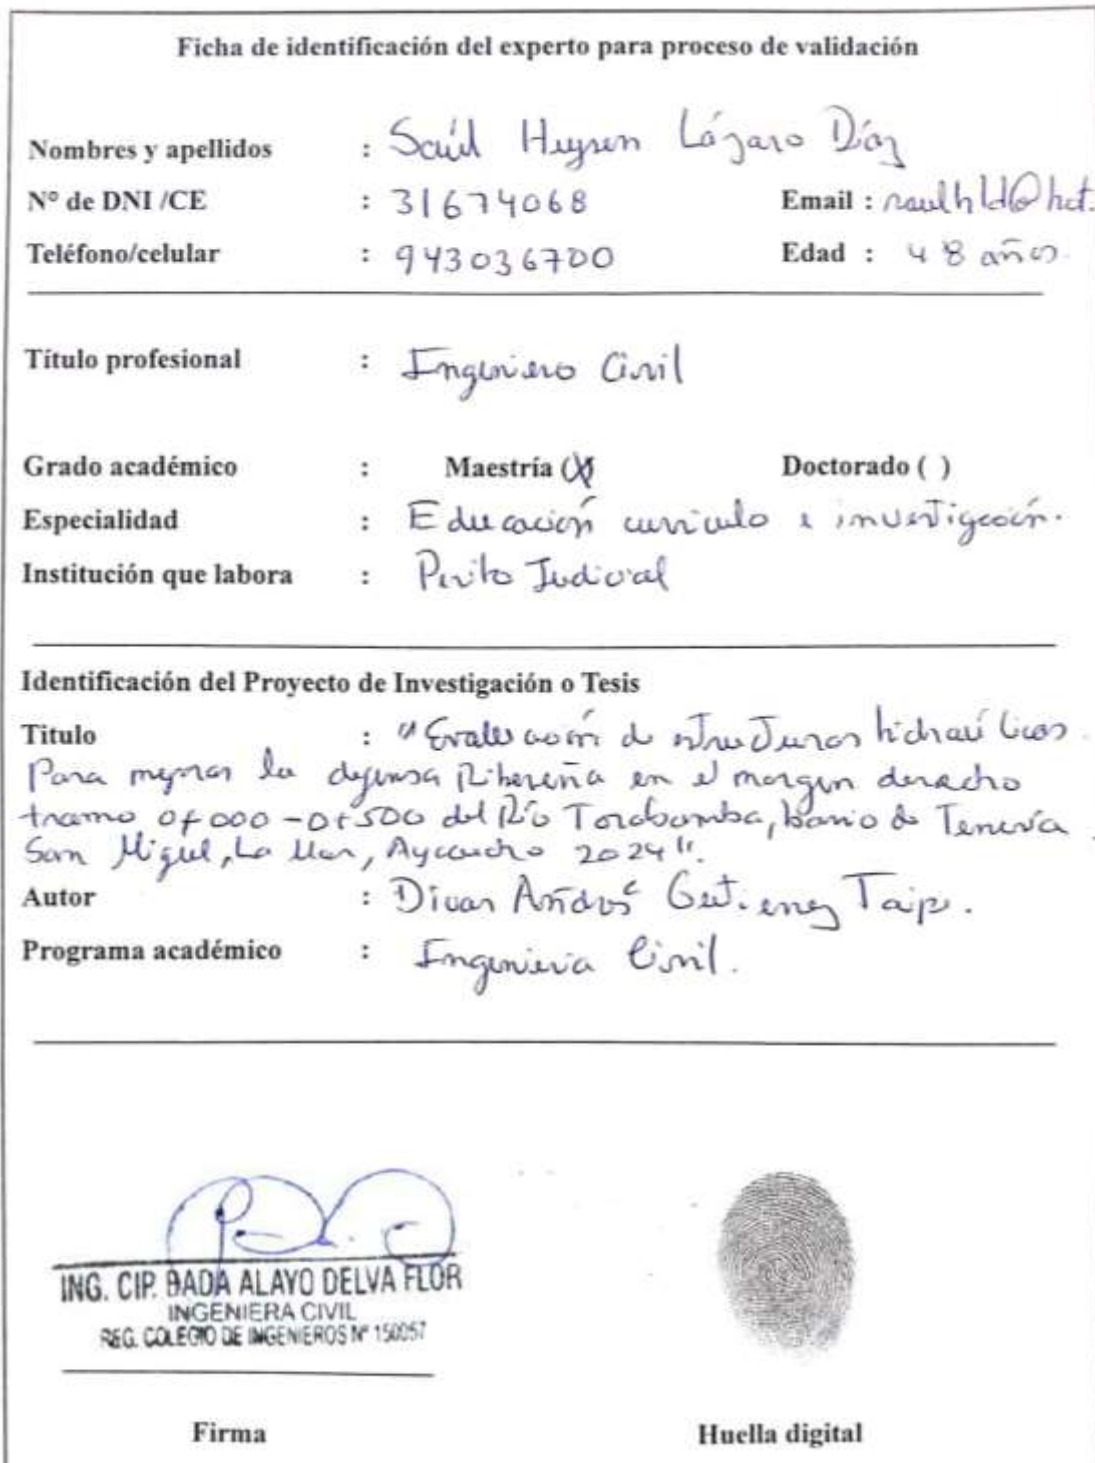 Ficha de identificación del experto para proceso de validación
Nombres y apellidos : Saúl Heysen Lázaro Díaz
Nº de DNI /CE : 31674068 Email : saulhld@hot.
Teléfono/celular : 943036700 Edad : 48 años.
Título profesional : Ingeniero Civil
Grado académico : Maestría (X) Doctorado ( )
Especialidad : Educación curriculo e investigación.
Institución que labora : Perito Judicial
Identificación del Proyecto de Investigación o Tesis
Titulo : "Evaluación de estructuras hidraúlicas
Para mejorar la defensa Ribereña en el margen derecho
tramo 0+000-0+500 del Río Torobamba, barrio de Tenería,
San Miguel, La Mar, Ayacucho 2024".
Autor : Andrés Gutierrez Taipe.
Programa académico : Ingenieria Civil.
ING. CIP. BADA ALAYO DELVA FLOR
INGENIERA CIVIL
REG. COLEGIO DE INGENIEROS Nº 150057
Firma Huella digital